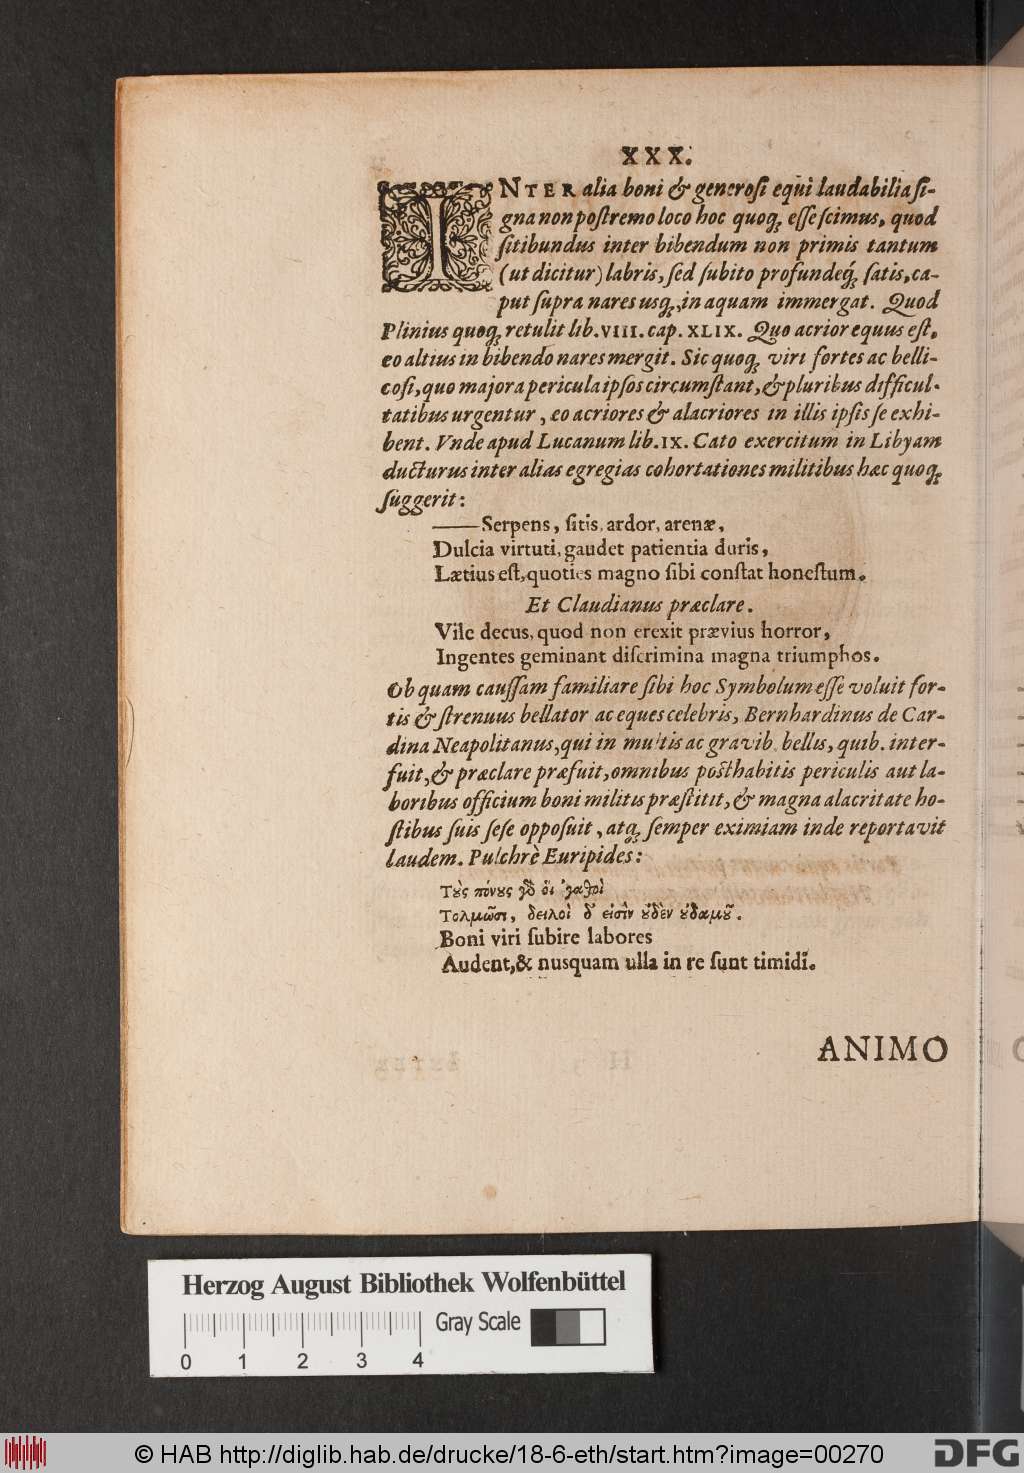 XXX.
INTER alia boni & generosi equi laudabilia si-
gna non postremo loco hoc quoq; esse scimus, quod
sitibundus inter bibendum non primis tantum
(ut dicitur) labris, sed subito profundeq́; satis, ca-
put supra nares usq; in aquam immergat. Quod
Plinius quoq; retulit lib. VIII. cap. XLIX. Quo acrior equus est,
eo altius in bibendo nares mergit. Sic quoq; viri fortes ac belli-
cosi, quo majora pericula ipsos circumstant, & pluribus difficul-
tatibus urgentur, eo acriores & alacriores in illis ipsis se exhi-
bent. Vnde apud Lucanum lib. IX. Cato exercitum in Libyam
ducturus inter alias egregias cohortationes militibus hæc quoq;
suggerit:
—— Serpens, sitis, ardor, arenæ,
Dulcia virtuti, gaudet patientia duris,
Lætius est, quoties magno sibi constat honestum.
Et Claudianus præclare.
Vile decus, quod non erexit prævius horror,
Ingentes geminant discrimina magna triumphos.
Ob quam caussam familiare sibi hoc Symbolum esse voluit for-
tis & strenuus bellator ac eques celebris, Bernhardinus de Car-
dina Neapolitanus, qui in multis ac gravib. bellis, quib. inter-
fuit, & præclare præfuit, omnibus posthabitis periculis aut la-
boribus officium boni militis præstitit, & magna alacritate ho-
stibus suis sese opposuit, atq; semper eximiam inde reportavit
laudem. Pulchrè Euripides:
Τοὺς πόνους γὸ οἱ ἀγαθοὶ
Τολμῶσι, δειλοὶ δ' εἰσὶν οὐδὲν οὐδαμοῦ.
Boni viri subire labores
Audent, & nusquam ulla in re sunt timidi.
ANIMO
Herzog August Bibliothek Wolfenbüttel
Gray Scale
0 1 2 3 4
© HAB http://diglib.hab.de/drucke/18-6-eth/start.htm?image=00270
DFG